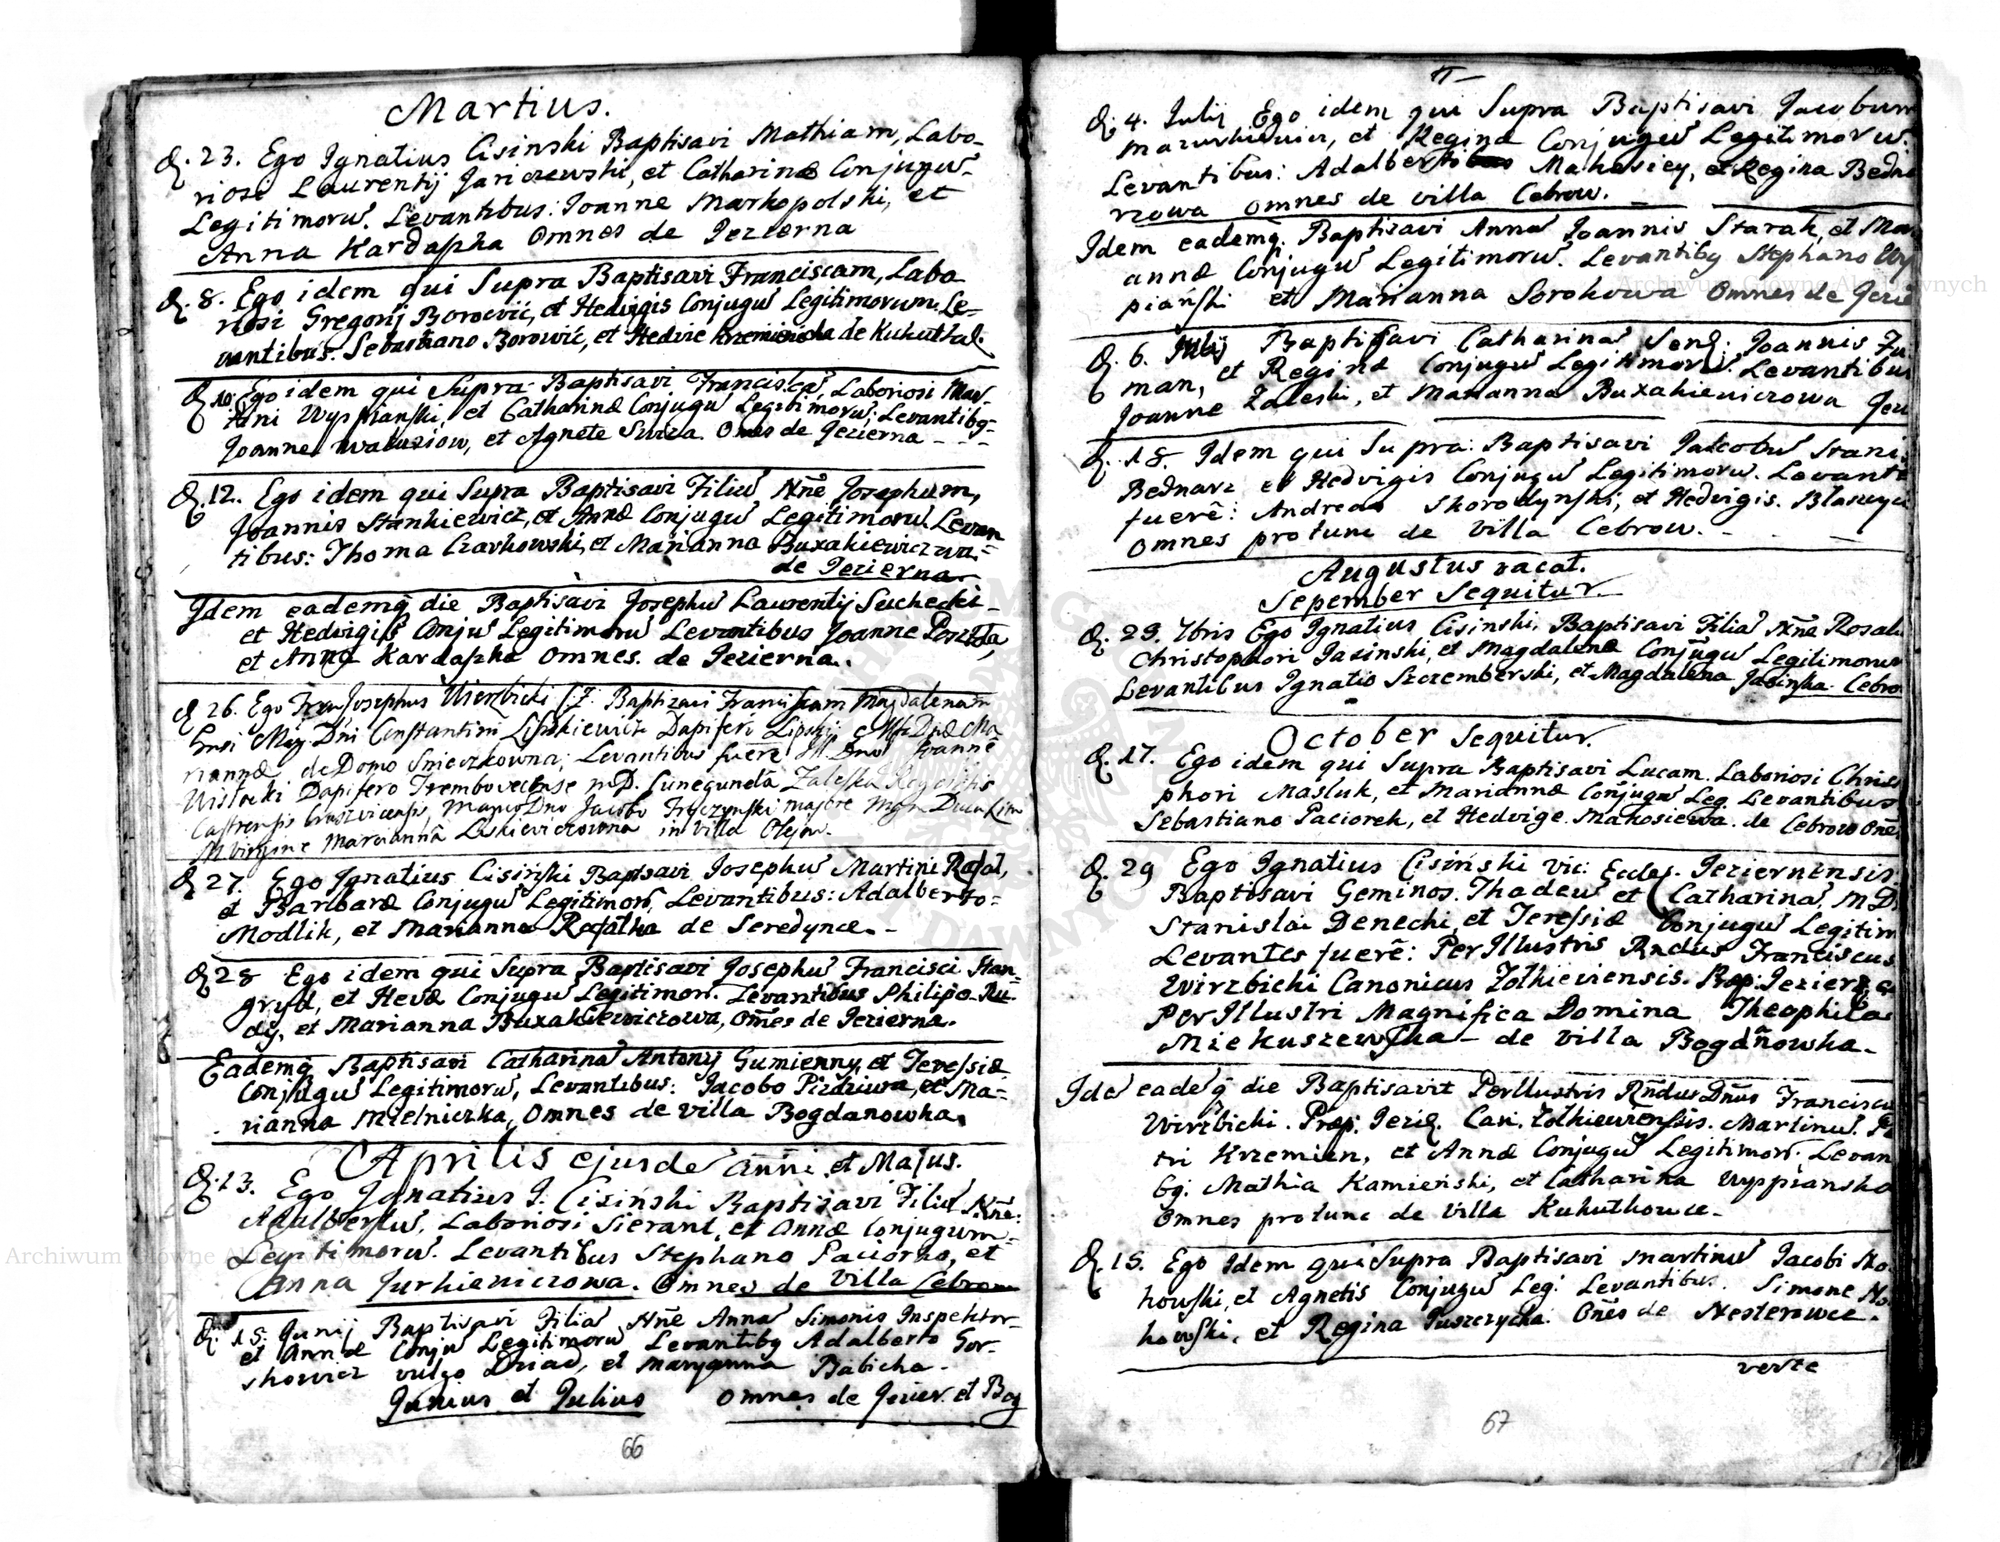 Martius.
d. 23. Ego Ignatius Cisinski Baptisavi Mathiam, Labo-
riosi Laurentij Jariczewski, et Catharinæ Conjugũ
Legitimorũ. Levantibus: Joanne Markopolski, et
Anna Kardaszka Omnes de Jezierna
d. 8. Ego idem qui Supra Baptisavi Franciscam, Labo
riosi Gregorij Borowić, et Hedvigis Conjugũ Legitimorum Le-
vantibus. Sebastiano Borowić, et Hedvie Krzemieńska de Kukutkul.
d. 10. Ego idem qui Supra Baptisavi Franciscã, Laboriosi Mar-
tini Wyspianski, et Catharinæ Conjugũ Legitimorũ; Levantibg-
Joanne Waluziow, et Agnete Surza. Omes de Jezierna
d. 12. Ego idem qui Supra Baptisavi Filiũ Nñe Josephum,
Joannis Stankiewicz, et Annæ Conjugũ Legitimorũ Levan
tibus: Thoma Czarkowski, et Marianna Buxakiewiczowa.
de Jezierna.
Idem eademq̃ die Baptisavi Josephũ Laurentij Suchecki
et Hedvigis Conjũ Legitimorũ Levantibus Joanne Porzda,
et Anna Kardaszka Omnes. de Jezierna.
d 26. Ego Fran Josephus Wierzbicki Baptizavi Franciscam Magdalenam
Gnosi Mag Dñi Constantini Liskiewicz Dapiferi Lipskij et Mfæ Dnæ Ma
riannæ de Domo Snieczkowna; Levantibus fuere M. Dno Joanne
Wislocki Dapifero Trembovelense M.D. Cunegunda Zaleska Regentis
Castrensis Magco Dno Jacobo Tręczynski majore Mgfa
M virgine Marianna Liskieviczowna in villa Olejow.
d 27. Ego Ignatius Cisiński Baptisavi Josephũ Martini Rafał,
et Barbaræ Conjugũ Legitimorũ, Levantibus: Adalberto
Modlik, et Marianna Rafałka de Seredynce.
d 28 Ego idem qui Supra Baptisavi Josephũ Francisci Han-
gryd, et Hevæ Conjugũ Legitimorũ. Levantibus Philipo Ru-
dy, et Marianna Buxakiewiczowa, Omẽs de Jezierna.
Eademq̃ Baptisavi Catharinã Antonij Gumienny, et Teressiæ
Conjugũ Legitimorũ, Levantibus: Jacobo Pizdziwa, et Ma-
rianna Mielniczka, Omnes de villa Bogdanowka.
Aprilis ejusde anni et Majus.
d. 13. Ego Ignatius J. Cisiński Baptisavi Filiũ Nñe:
Adalbertũ, Laboriosi Sierant, et Annæ Conjugum
Legitimorũ. Levantibus Stephano Paciorko, et
Anna Jurkiewiczowa. Omnes de villa Cebrow
d. 15. Junij Baptisavi Filiã Nñe Annã Simonis Inspektor
et Annæ Conju Legitimorũ Levantibg Adalberto Gor-
skowicz vulgo Dziad, et Maryanna Babicha.
Junius et Julius Omnes de Jezier. et Bog
66
d. 4. Julij Ego idem qui Supra Baptisavi Jacobum
et Reginæ Conjugũ Legitimorũ.
Levantibus: Adalberto Makosiey, et Regina Bedna
rzowa omnes de villa Cebrow.
Idem eademq̃. Baptisavi Annã Joannis Starak, et Mari
annæ Conjugũ Legitimorũ. Levantibg Stephano Wys
piański et Marianna Sorokowa Omnes de Jezie
d. 6. Julij Baptissavi Catharinã Joannis Fu
man, et Reginæ Conjugũ Legitimorũ. Levantibus
Joanne Zaleski, et Marianna Buxakiewiczowa Jezi
d. 18. Idem qui Supra: Baptisavi Jakobũ Stanis
Bednarz et Hedvigis Conjugũ Legitimorũ. Levante
fuerẽ: Andreas Skorodynski, et Hedvigis. Blaszyc
Omnes protunc de villa Cebrow.
Augustus vacat.
Sepember Sequitur.
d. 29. 7bris Ego Ignatius Cisinski. Baptisavi Filiã Nñe Rosali
Christophori Jasinski, et Magdalenæ Conjugũ Legitimorum
Levantibus Ignatio Szczemberski, et Magdalena Jasinska. Cebro
October Sequitur.
d. 17. Ego idem qui Supra Baptisavi Lucam. Laboriosi Chris
phori Masluk, et Mariannæ Conjugũ Leg. Levantibus
Sebastiano Paciorek, et Hedvige Makosiewa. de Cebrow Onẽs
d. 29 Ego Ignatius Cisiński Vic: Eccles. Jeziernensis
Baptisavi Geminos. Thadeũ et Catharinã, M.D.
Stanislai Denecki, et Teressiæ Conjugũ Legitim
Levantes fuerẽ: Per Illustris Rndus Franciscus
Wirzbicki Canonicus Zolkieviensis. Præp: Jezierz
Per Illustri Magnifica Domina Theophila
Miekuszewska - de villa Bogdañowka.
Ide eadeq̃ die Baptisavit Perllustris Rñdus Dñus Franciscu
Wirzbicki. Præp: Jezier. Can. Zolkiewienssis. Martinũ. Pe
tri Krzemien, et Annæ Conjugũ Legitimorũ. Levan
bg. Mathia Kamieński, et Catharina Wyspianska
Omnes protunc de villa Kukutkowce.
d. 15. Ego Idem qui Supra Baptisavi Martinũ Jacobi No
howski, et Agnetis Conjugũ Leg: Levantibus. Simone No
kowski, et Regina Puszczycha. Onẽs de Nesterowce.
verte
67
Archiwum Główne Akt Dawnych
Archiwum Główne Akt Dawnych